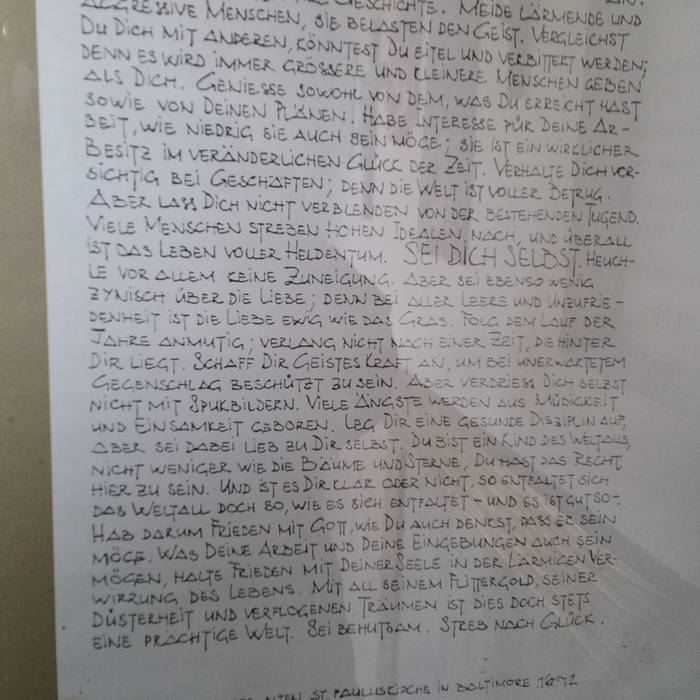 GESCHICHTE. MEIDE LÄRMENDE UND
AGGRESSIVE MENSCHEN, SIE BELASTEN DEN GEIST. VERGLEICHST
DU DICH MIT ANDEREN, KÖNNTEST DU EITEL UND VERBITTERT WERDEN;
DENN ES WIRD IMMER GRÖSSERE UND KLEINERE MENSCHEN GEBEN
ALS DICH. GENIESSE SOWOHL VON DEM, WAS DU ERREICHT HAST
SOWIE VON DEINEN PLÄNEN! HABE INTERESSE FÜR DEINE AR-
BEIT, WIE NIEDRIG SIE AUCH SEIN MÖGE; SIE IST EIN WIRKLICHER
BESITZ IM VERÄNDERLICHEN GLÜCK DER ZEIT. VERHALTE DICH VOR-
SICHTIG BEI GESCHÄFTEN; DENN DIE WELT IST VOLLER BETRUG.
ABER LASS DICH NICHT VERBLENDEN VON DER BESTEHENDEN TUGEND.
VIELE MENSCHEN STREBEN HOHEN IDEALEN NACH, UND ÜBERALL
IST DAS LEBEN VOLLER HELDENTUM. SEI DICH SELBST. HEUCH-
LE VOR ALLEM KEINE ZUNEIGUNG. ABER SEI EBENSO WENIG
ZYNISCH ÜBER DIE LIEBE; DENN BEI ALLER LEERE UND UNZUFRIE-
DENHEIT IST DIE LIEBE EWIG WIE DAS GRAS. FOLG DEM LAUF DER
JAHRE ANMUTIG; VERLANG NICHT NACH EINER ZEIT, DIE HINTER
DIR LIEGT. SCHAFF DIR GEISTESKRAFT AN, UM BEI UNERWARTETEM
GEGENSCHLAG BESCHÜTZT ZU SEIN. ABER VERDRIESS DICH SELBST
NICHT MIT SPUKBILDERN. VIELE ÄNGSTE WERDEN AUS MÜDIGKEIT
UND EINSAMKEIT GEBOREN. LEG DIR EINE GESUNDE DISZIPLIN AUF,
ABER SEI DABEI LIEB ZU DIR SELBST. DU BIST EIN KIND DES WELTALLS,
NICHT WENIGER WIE DIE BÄUME UND STERNE, DU HAST DAS RECHT
HIER ZU SEIN. UND IST ES DIR KLAR ODER NICHT, SO ENTFALTET SICH
DAS WELTALL DOCH SO, WIE ES SICH ENTFALTET - UND ES IST GUT SO -.
HAB DARUM FRIEDEN MIT GOTT, WIE DU AUCH DENKST, DASS ER SEIN
MÖGE. WAS DEINE ARBEIT UND DEINE EINGEBUNGEN AUCH SEIN
MÖGEN, HALTE FRIEDEN MIT DEINER SEELE IN DER LÄRMIGEN VER-
WIRRUNG DES LEBENS. MIT ALL SEINEM FLITTERGOLD, SEINER
DÜSTERHEIT UND VERFLOGENEN TRÄUMEN IST DIES DOCH STETS
EINE PRÄCHTIGE WELT. SEI BEHUTSAM. STREB NACH GLÜCK.
ALTEN ST. PAULUSKIRCHE IN BALTIMORE 1692